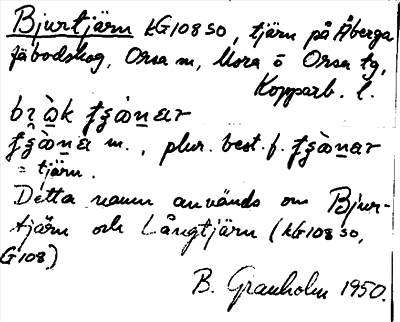 Bjurtjärn kG108 SO, tjärn på Åberga
fäbodskog, Orsa sn, Mora o Orsa tg,
Kopparb. l.
m., plur. best. f.
= tjärn.
Detta namn används om Bjur-
tjärn och Långtjärn (kG108 SO,
G108)
B. Granholm 1950.